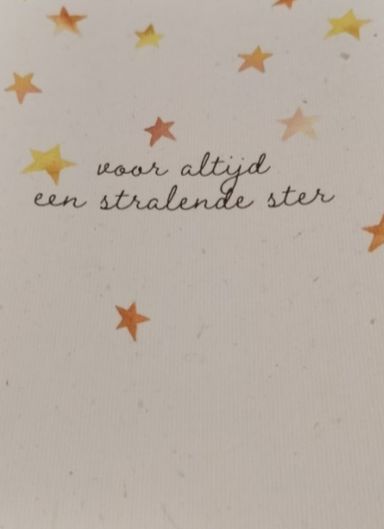 voor altijd
een stralende ster